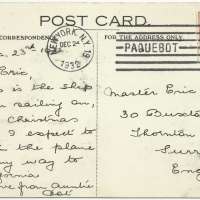 POST CARD.
CORRESPONDENCE
FOR THE ADDRESS ONLY.
NEW YORK, N.Y. 19
DEC 24
1932
PAQUEBOT
23rd
Eric,
is the ship
sailing on,
Christmas
I expect to
the plane
way to
from Auntie
Master Eric
30
Thornton
Surr
Eng